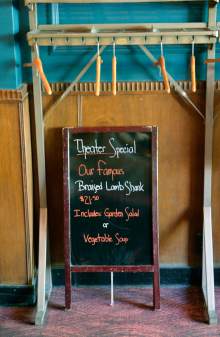 Theater Special
Our Famous
Braised Lamb Shank
$21.50
Includes Garden Salad
or
Vegetable Soup